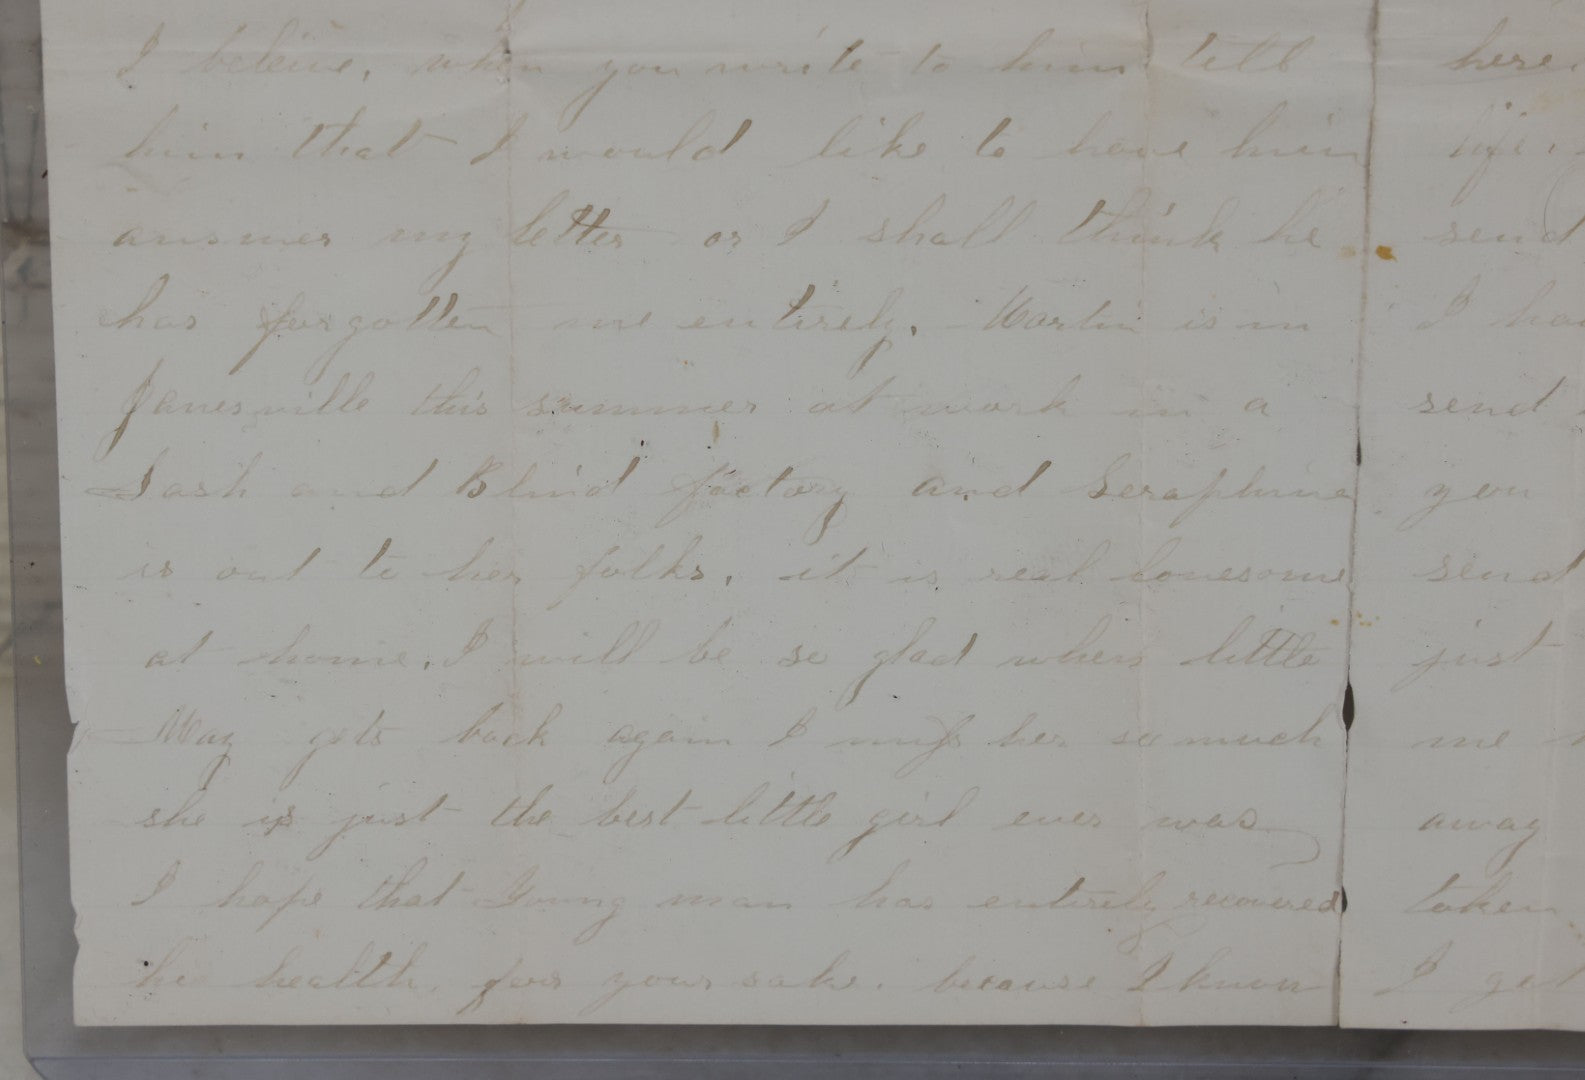 I beleive, when you write to him tell
him that I would like to have him
answer my letter or I shall think he
has forgotten me entirely. Martin is in
Janesville this summer at work in a
Sash and Blind factory and Seraphine
is out to her folks. it is real lonesome
at home. I will be so glad when little
May gets back again I miss her so much
she is just the best little girl ever was
I hope that Young man has entirely recovered
his health, for your sake. because I know
here.
life.
send
I
send
you
send
just
me
away
taken
I get